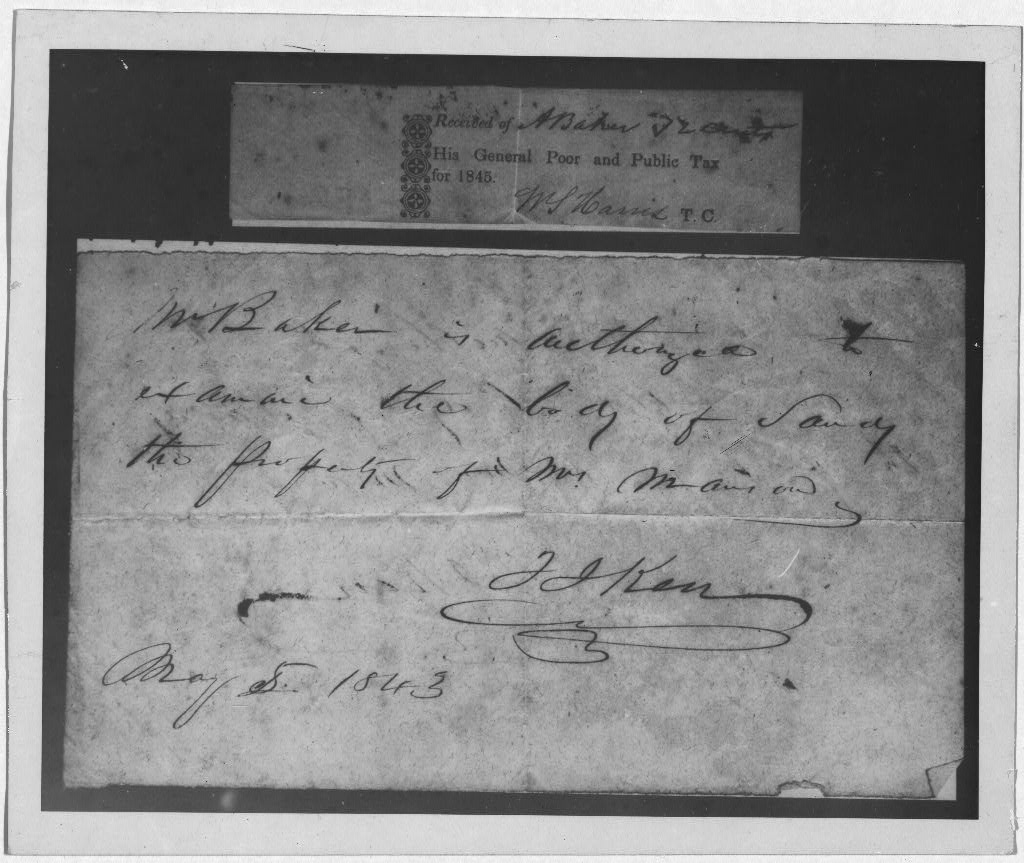 Received of A Baker 72 cents
His General Poor and Public Tax
for 1845.
WS Harris T. C.
Mr Baker is authorized to
examine the body of Sandy
the property of Mrs
May 5. 1843